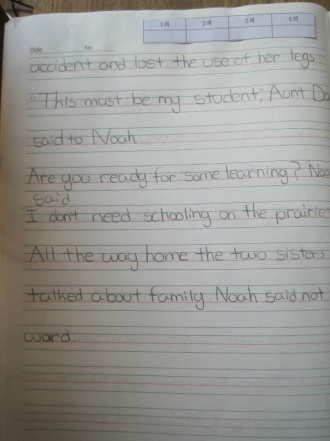 1회 2회 3회 4회
Date No
accident and lost the use of her legs.
"This must be my student," Aunt Do
said to Noah
Are you ready for some learning? Noa
said
I don't need schooling on the prairie
All the way home the two sisters
talked about family. Noah said not
word